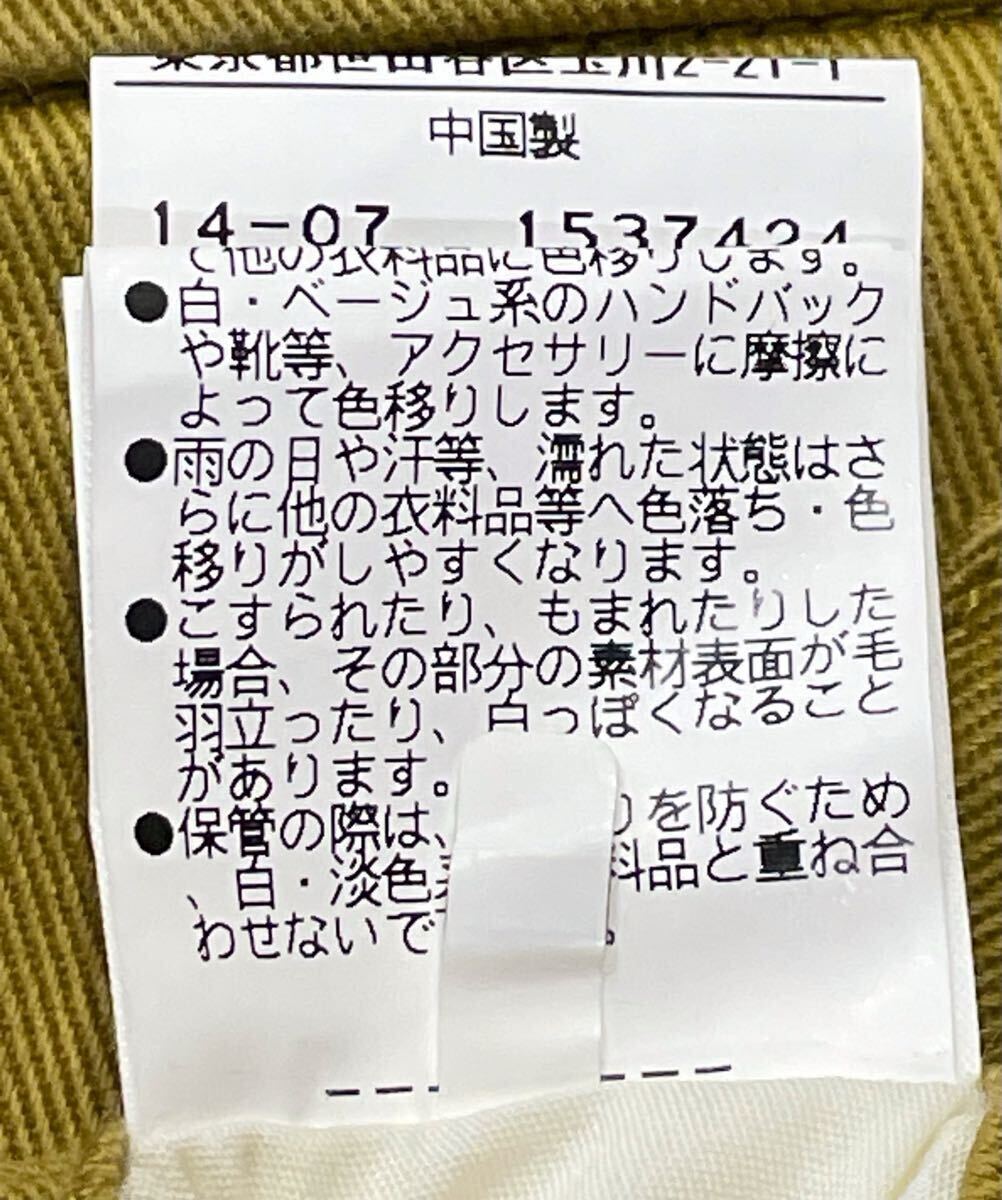 東京都世田谷区玉川2-21-1
中国製
14-07 1537424
て他の衣料品に色移りします。
●白・ベージュ系のハンドバック
や靴等、アクセサリーに摩擦に
よって色移りします。
●雨の日や汗等、濡れた状態はさ
らに他の衣料品等へ色落ち・色
移りがしやすくなります。
●こすられたり、もまれたりした
場合、その部分の素材表面が毛
羽立ったり、白っぽくなること
があります。
●保管の際は、 りを防ぐため
、白・淡色 料品と重ね合
わせないで 。